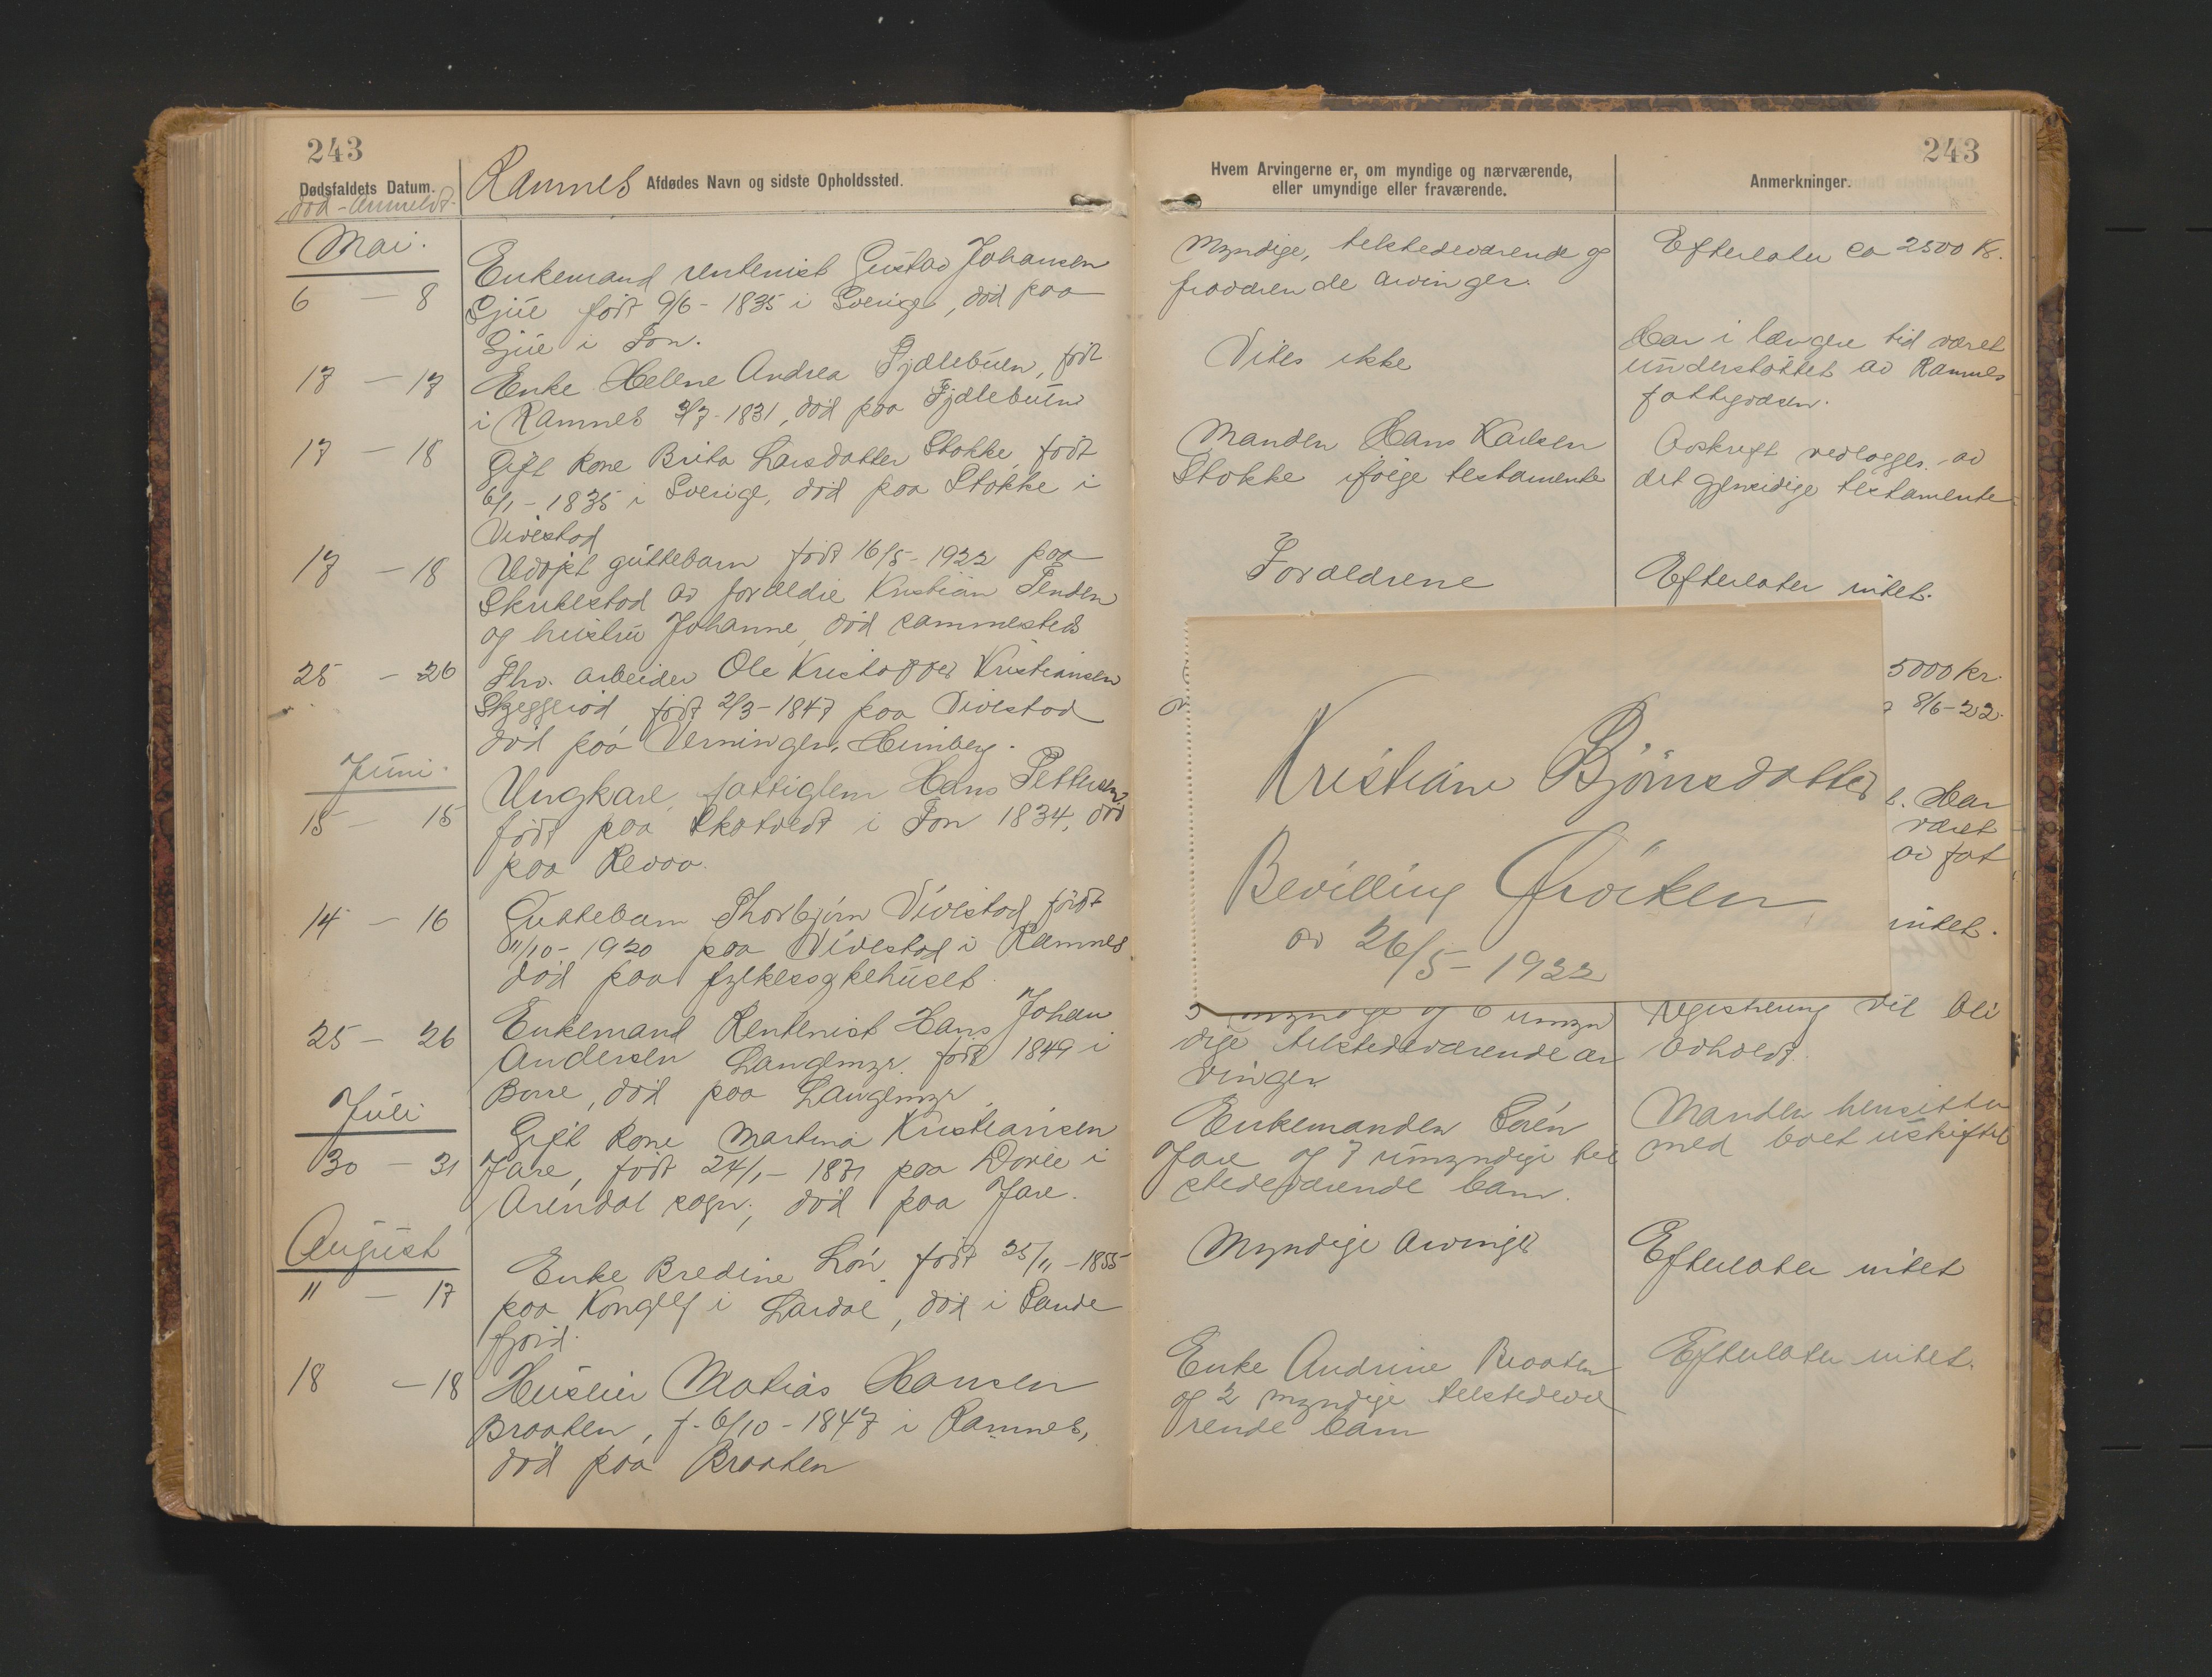 243
Dødsfaldets Datum.
død - Anmeldt.
Ramnes Afdødes Navn og sidste Opholdssted.
Mai.
6 - 8
Enkemand rentenist Gustav Johansen
Gjue født 9/6 - 1835 i Sverige, død paa
Gjue i Fon.
17 - 17
Enke Helene Andrea Fjælebuen, født
i Ramnes 3/7 - 1831, død paa Fjælebuen
17 - 18
Gift kone Brita Larsdatter Stokke, født
6/1 - 1835 i Sverige, død paa Stokke i
Vivestad
17 - 18
Udøpt guttebarn født 16/5 - 1922 paa
av forældre Kristian
og hustru Johanne, død sammesteds
25 - 26
Fhv. arbeider Ole Kristoffer Kristiansen
Skjeggerød, født 2/3 - 1847 paa Vivestad
død paa Verningen, Heimberg.
Juni.
15 - 15
Ungkarl, fattiglem Hans Pettersen,
født paa i Fon 1834, død
paa Revaa.
14 - 16
Guttebarn Thorbjørn Vivestad, født
11/10 - 1920 paa Vivestad i Ramnes
død paa fylkessykehuset.
25 - 26
Enkemand Rentenist Hans Johan
Andersen Langemyr. født 1849 i
Borre, død paa Langemyr.
Juli
30 - 31
Gift kone Martina Kristiansen
Jare, født 24/1 - 1871 paa i
Arendal sogn, død paa Jare.
August
11 - 17
Enke Bredine Løn, født 25/11 - 1855
paa i Lardal, død i Sande
fjord.
18 - 18
Huseier Matias Hansen
Braaten, f. 6/10 - 1847 i Ramnes,
død paa Braaten
243
Hvem Arvingerne er, om myndige og nærværende,
eller umyndige eller fraværende.
Anmerkninger.
Myndige, tilstedeværende og
fraværende arvinger.
Efterlater ca 2500 Kr.
Vites ikke
Har i længere tid været
understøttet av Ramnes
fattigvæsen.
Manden Hans Karlsen
Stokke ifølge testamente
Avskrift vedlægges av
det gjensidige testamente
Forældrene
Efterlater intet.
5000 kr.
8/6 - 22.
Kristiane Bjørnsdatter
Bevilling Frøiken
av 26/5 - 1922
t. Har
været
av fat
intet.
myndige og 6 umyn
dige tilstedeværende ar
vinger
Registrering vil bli
avholdt.
Enkemanden Sørén
Jare og 7 umyndige til
stedeværende barn.
Manden hensitter
med boet uskiftet
Myndige arvinger
Efterlater intet
Enke Andrine Braaten
og 2 myndige tilstedevæ
rende barn
Efterlater intet.